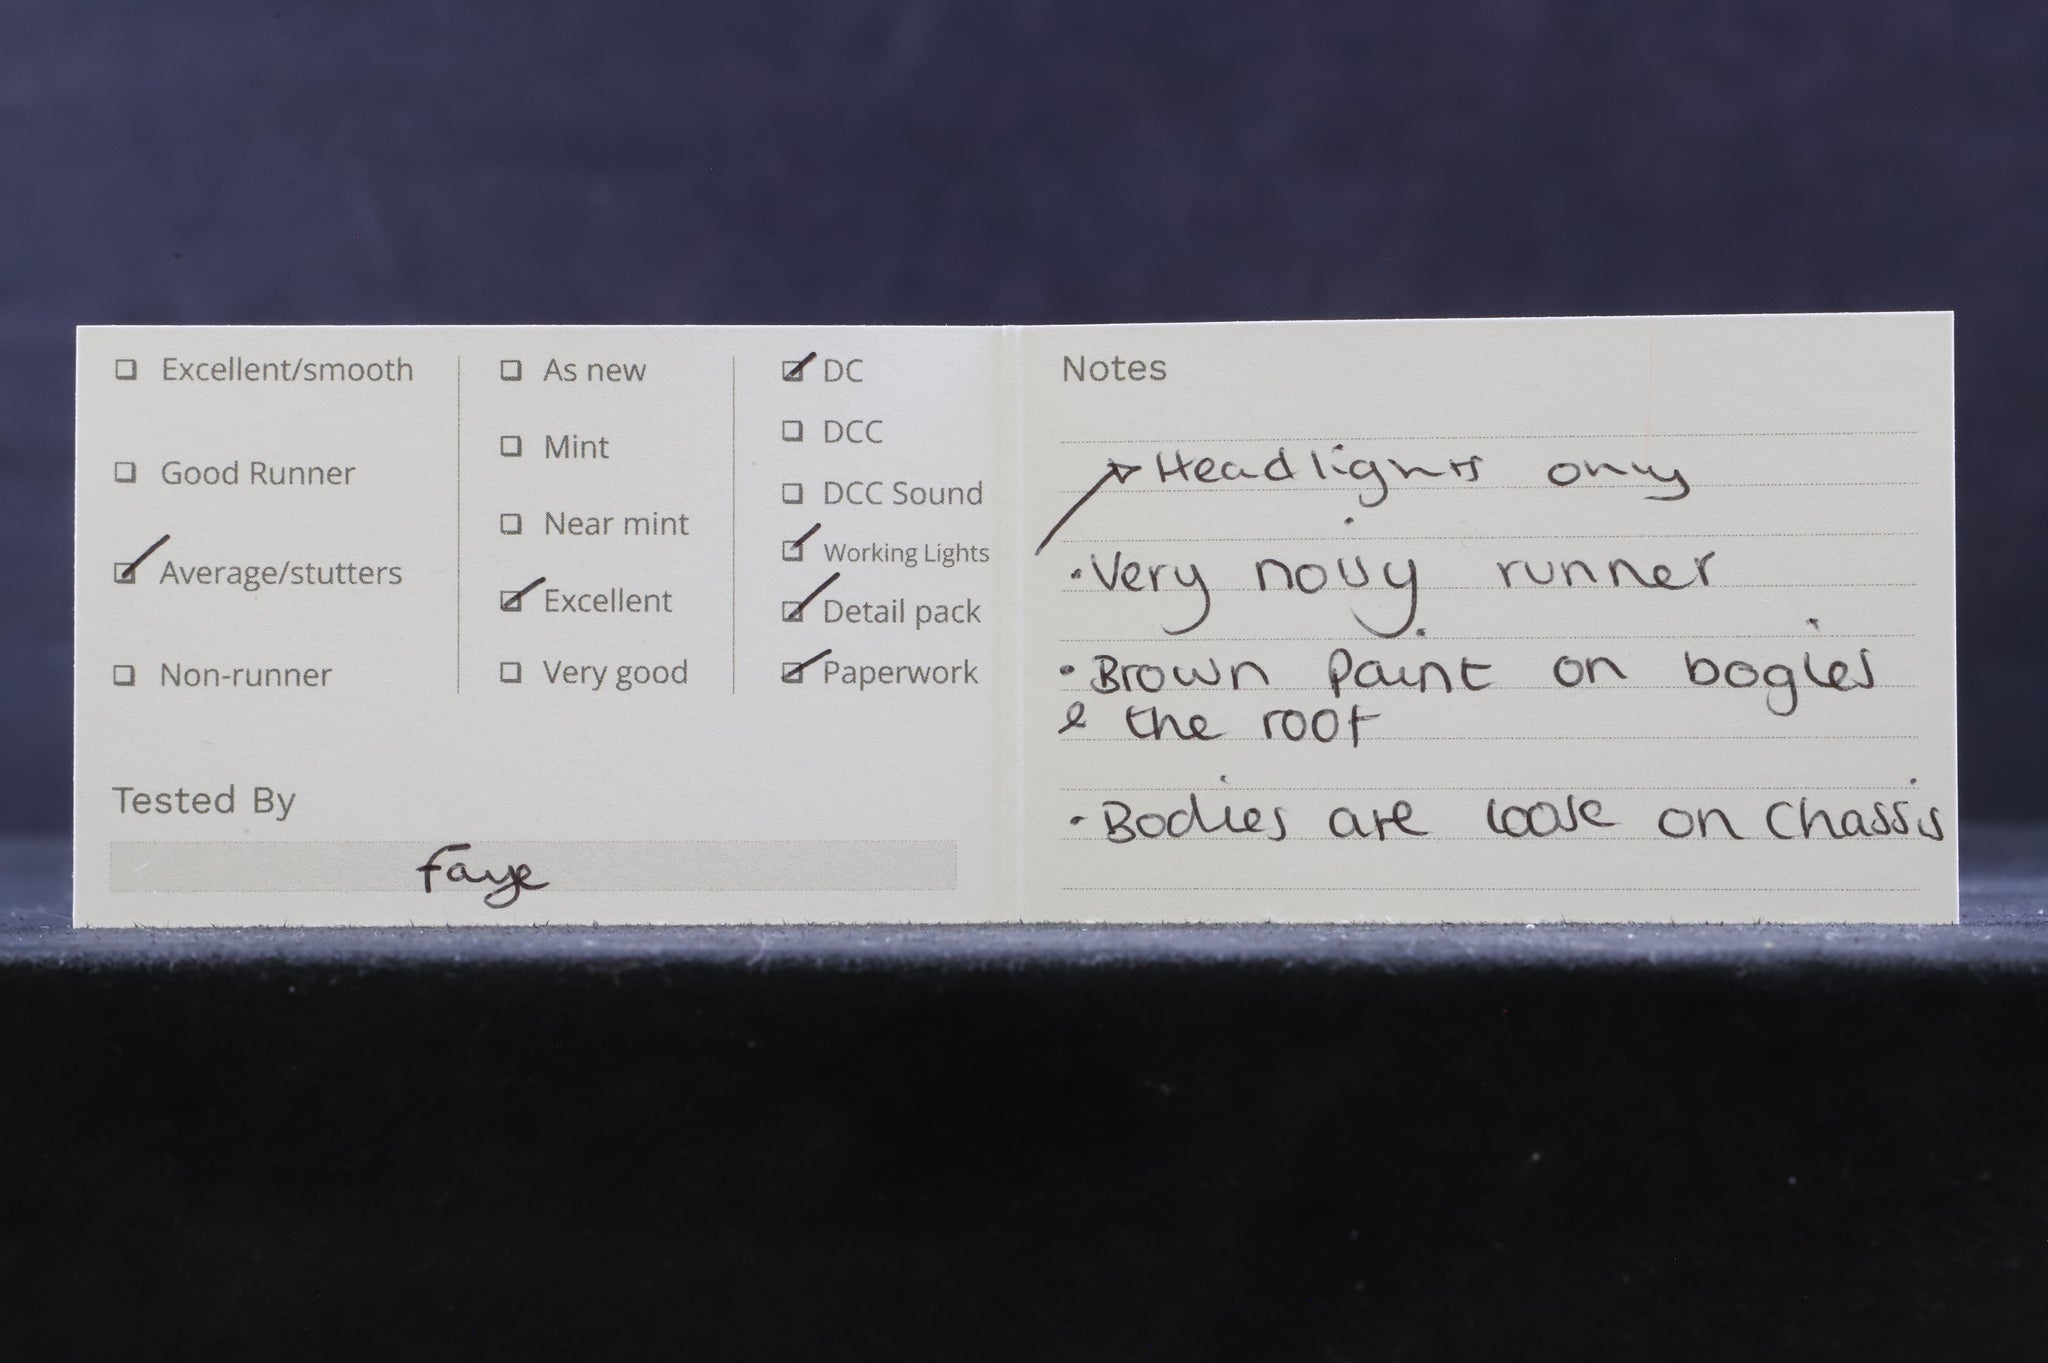 Excellent/smooth
Good Runner
Average/stutters
Non-runner
As new
Mint
Near mint
Excellent
Very good
DC
DCC
DCC Sound
Working Lights
Detail pack
Paperwork
Tested By
Faye
Notes
Headlights only
• Very noisy runner
• Brown paint on bogies
& the roof
• Bodies are loose on chassis